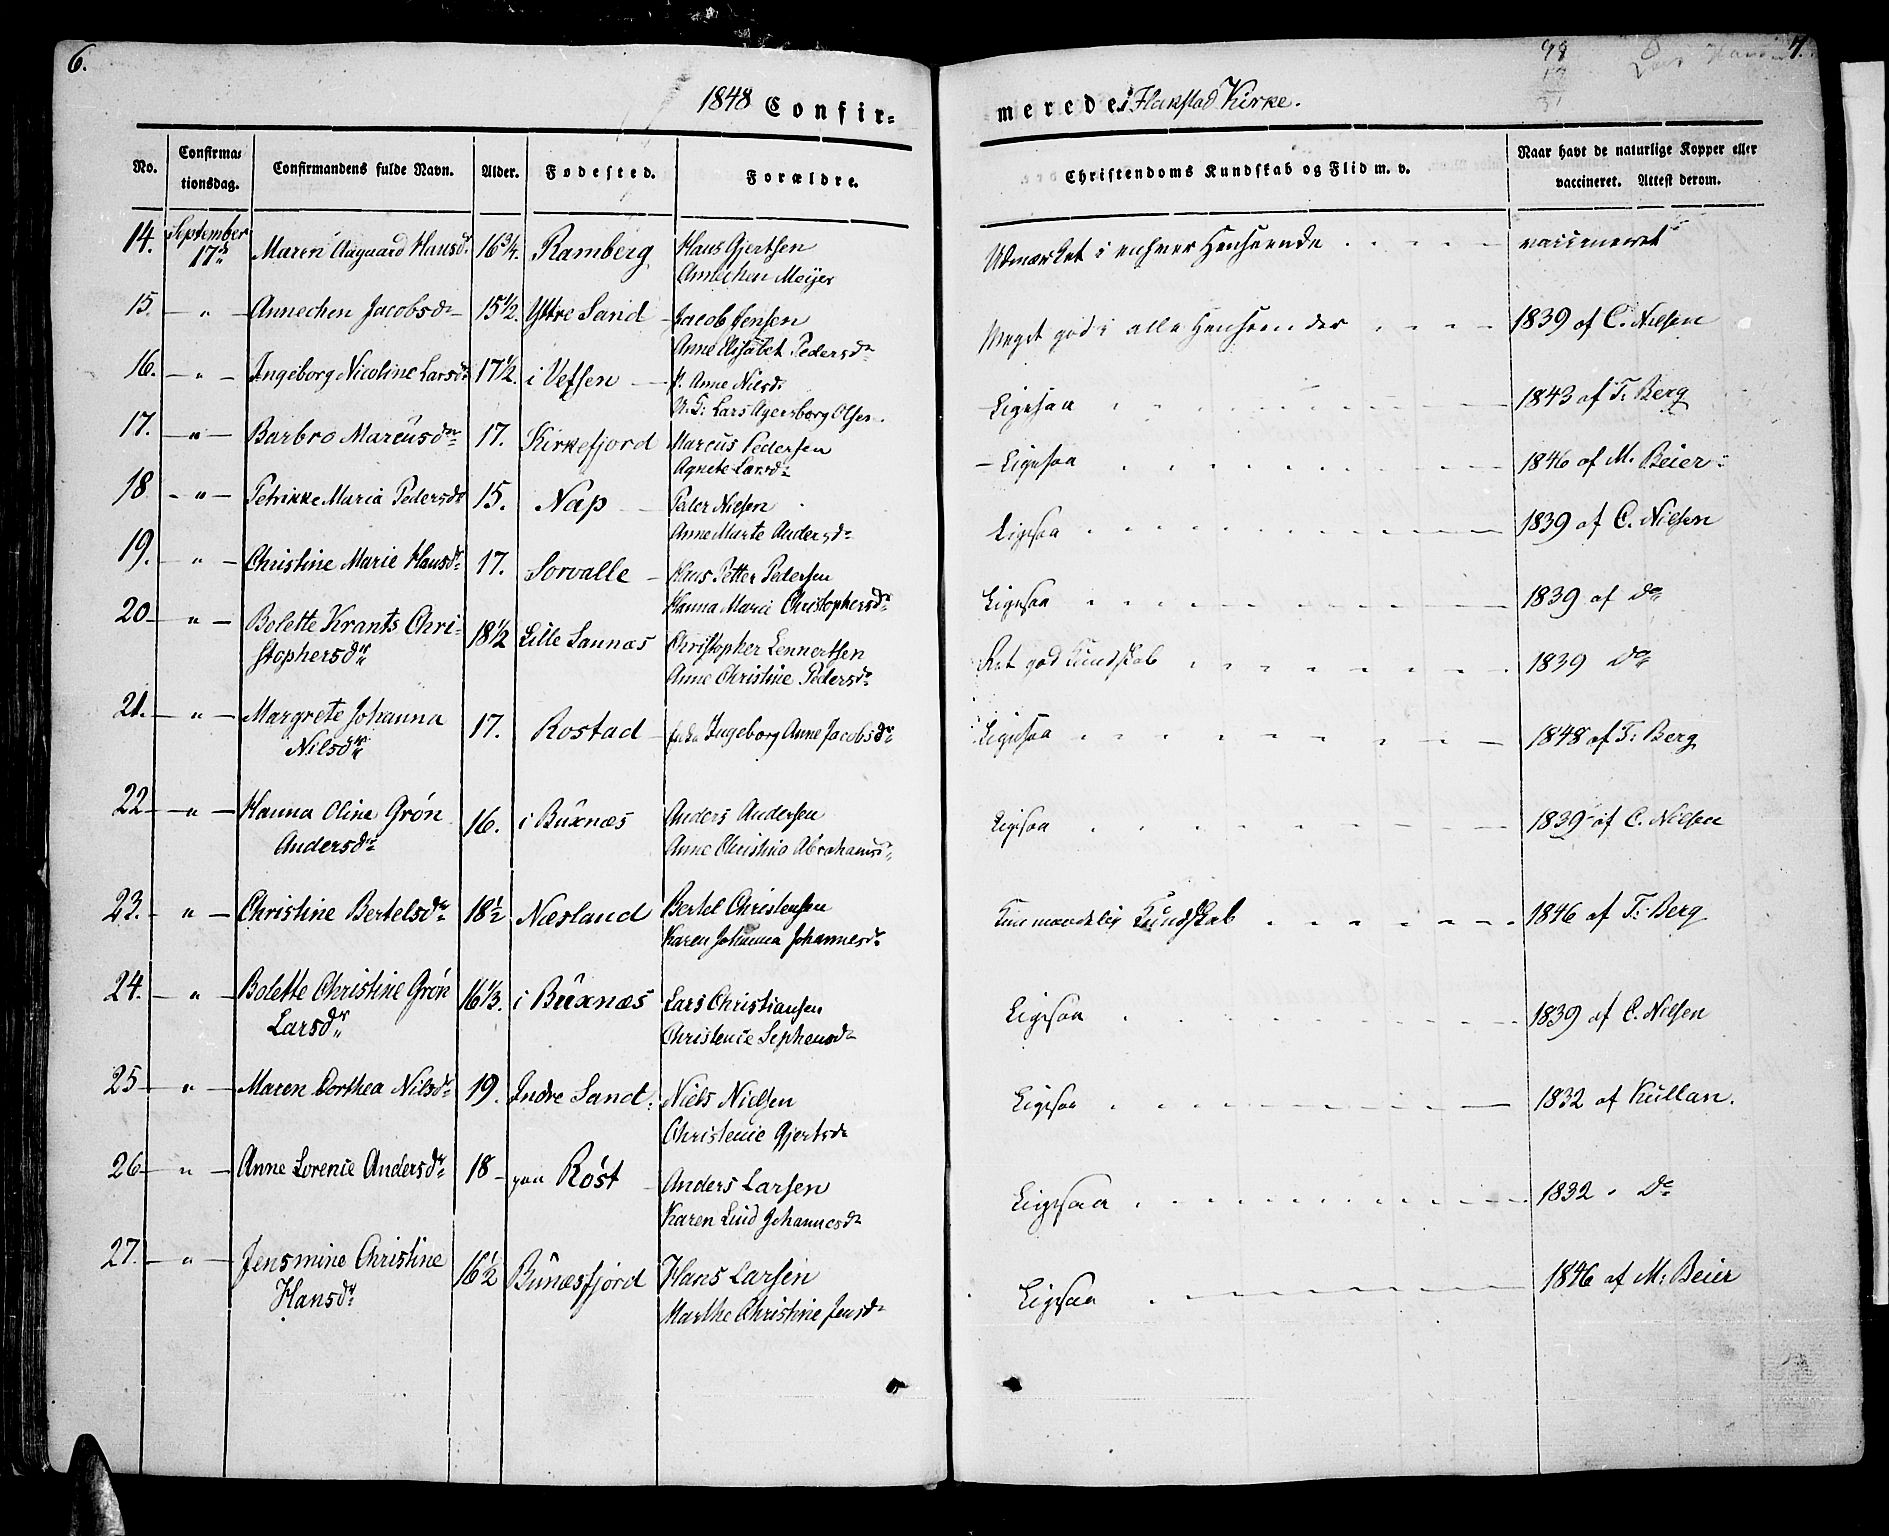 6.
7.
98
1848 Confir=
merede i Flakstad Kirke.
No.
Confirma=
tionsdag.
Confirmandens fulde Navn.
Alder.
Fødested.
Forældre.
Christendoms Kundskab og Flid m. v.
Naar havt de naturlige Kopper eller
vaccineret. Attest derom.
14. September 17de Maren Aagaard Hansdr 16 3/4. Ramberg Hans Gjertsen Udmærket i enhver Henseende - - - vaccineret
Annichen Meijer
15. — " — Annechen Jacobsdr 15 1/2. Yttre Sand — Jacob Jensen Meget god i alle Henseender - - - 1839 af C. Nielsen
Anne Elisabet Pedersdr
16. — " — Ingeborg Nicoline Larsdr 17 1/2. i Vefsen — P. Anne Nilsdr Ligesaa - - - 1843 af T. Berg
U. F: Lars Agersborg Olsen
17. — " — Barbro Marcusdr 17. Kirkefjord Marcus Pedersen — Ligesaa - - - 1846 af M. Beier
Agnete Larsdr
18 — " — Petrikke Maria Pedersdr 15. Nap — Peter Nielsen Ligesaa - - - 1839 af C. Nielsen
Anne Marte Andersdr
19. — " Christine Marie Hansdr 17. Sorvalle — Hans Petter Pedersen Ligesaa - - - 1839 af do
Hanna Marie Christophersdr
20 — " — Bolette Krants Chri- 18 1/2 Lille Sannæs Christopher Lennertsen Ret god Kundskab - - - 1839 do
stophersdr Anne Christine Pedersdr
21. — " — Margrete Johanna 17. Rostad — Ingeborg Anne Jacobsdr Ligesaa - - - 1848 af T. Berg
Nilsdr
22 — " — Hanna Oline Grøn 16. i Buxnæs Anders Andersen Ligesaa - - - 1839 af C. Nielsen
Andersdr Anne Christina Abrahamsdr
23. — " — Christine Bertelsdr 18 1/2 Næsland Bertel Christensen Kundskab - - - 1846 af T. Berg
Karen Johanna Johannesdr
24. — " — Bolette Christine Grøn 16 1/3. i Buxnæs Lars Christiansen Ligesaa - - - 1839 af C. Nielsen
Larsdr Christence Sephensdr
25 — " — Maren Dorthea Nilsdr 19. Indre Sand. Niels Nielsen Ligesaa - - - 1832 af Kullan.
Christence Gjertsdr
26 — " — Anne Lorence Andersdr 18 — paa Røst — Anders Larsen Ligesaa - - - 1832 " do
Karen Lind Johannesdr
27. — " — Jensmine Christine 16 1/2 Bunæsfjord Hans Larsen Ligesaa - - - 1846 af M: Beier
Hansdr Marthe Christine Jensdr